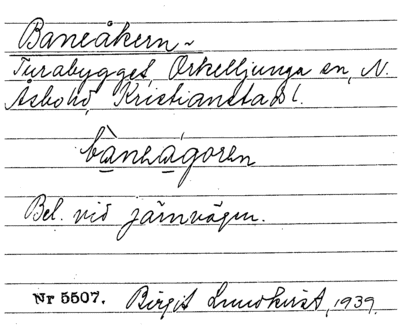 Baneåkern ~
Turabygget, Örkelljunga sn, N.
Åsbo hd, Kristianstad l.
bànəågoren
Bel. vid järnvägen.
Nr 5507. Birgit Lundkvist, 1939.